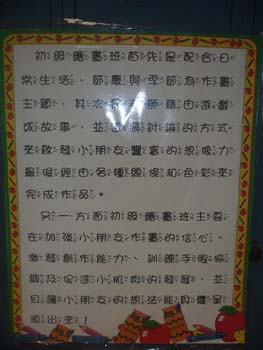 初級繪畫班首先是配合日
常生活、節慶與季節為作畫
主題，其次是老師藉由遊戲
或故事，並透過討論的方式
來啟發小朋友豐富的想像力
最後經由各種線條和色彩來
完成作品。
另一方面初級繪畫班主要
在加強小朋友作畫的信心、
激發創作能力、訓練手眼協
調及促進小肌肉的發展，並
且讓小朋友的想法能具體呈
現出來！